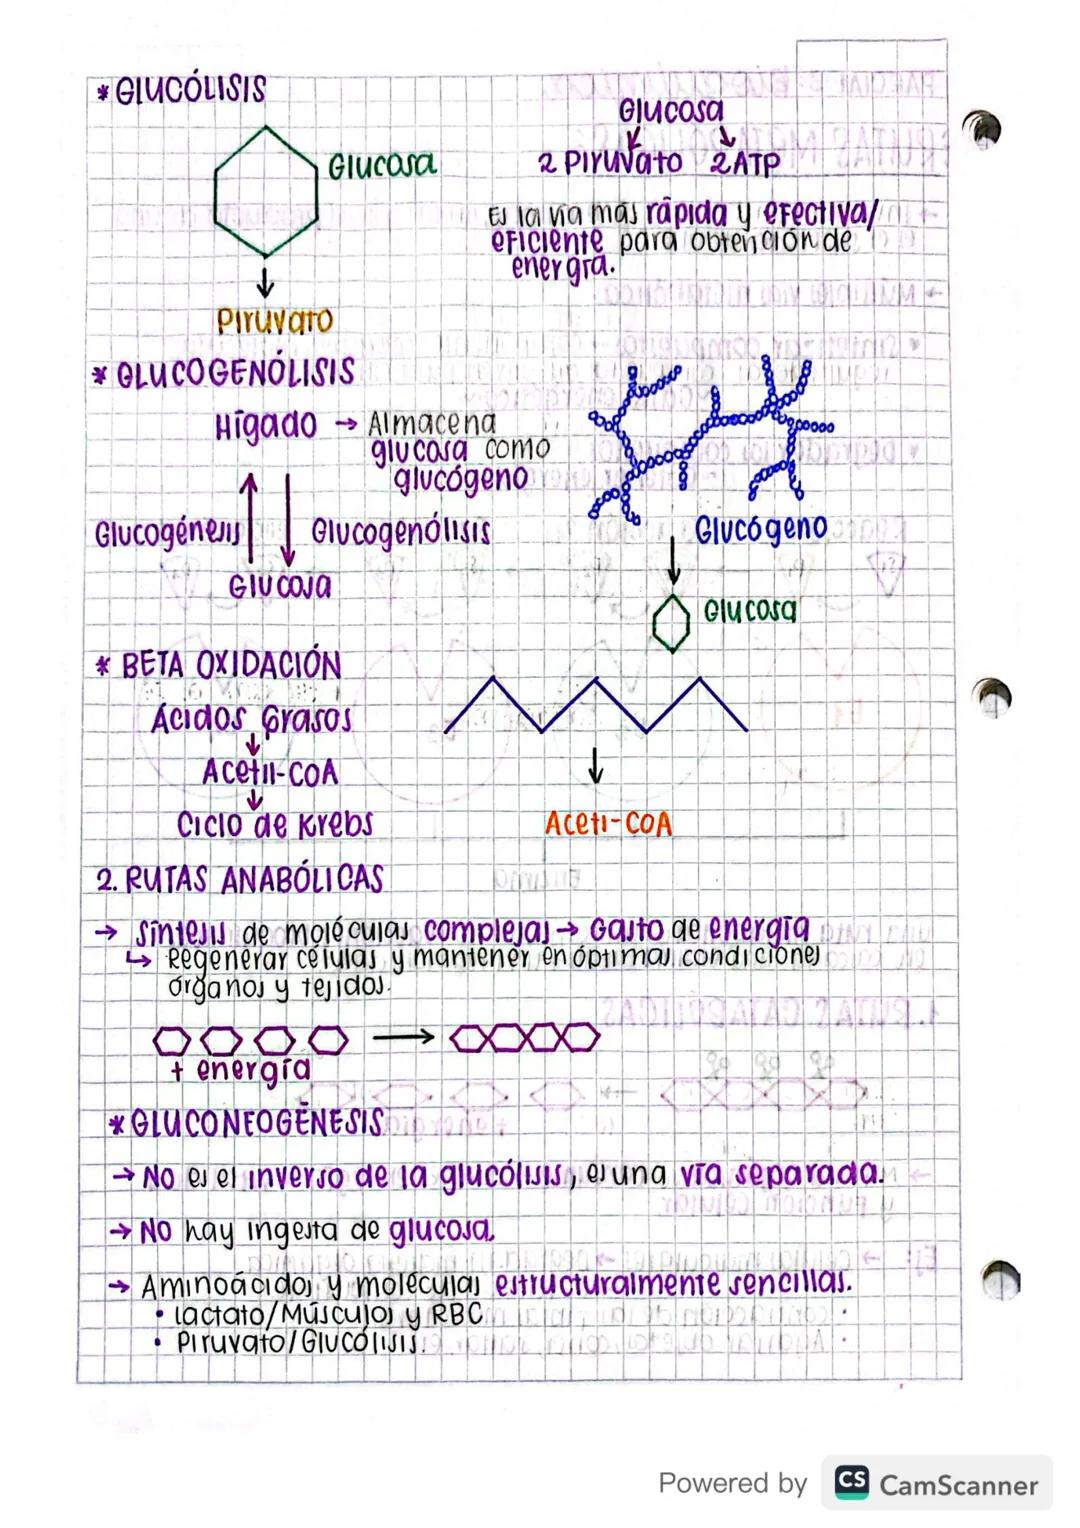 * GLUCÓLISIS
Glucosa
Piruvato
Glucosa
2 Piruvato 2 ATP
Es la vía más rápida y efectiva/
eficiente para obtención de
energía.
* GLUCOGENÓLISIS
Hígado → Almacena
glucosa como
glucógeno
Glucogénesis Glucogenólisis
Glucosa
Glucógeno
Glucosa
* BETA OXIDACIÓN
Ácidos Grasos
Acetil-CoA
Ciclo de Krebs
Aceti-COA
2. RUTAS ANABÓLICAS
→ Síntesis de moléculas complejas → Gasto de energía
↳ Regenerar células y mantener en óptimas condiciones
órganos y tejidos.
+ energía
* GLUCONEOGÉNESIS
→ No es el inverso de la glucólisis, es una vía separada.
→ NO hay ingesta de glucosa.
→ Aminoácidos y moléculas estructuralmente sencillas.
• lactato/Músculos y RBC
• Piruvato/Glucólisis.
Powered by CS CamScanner